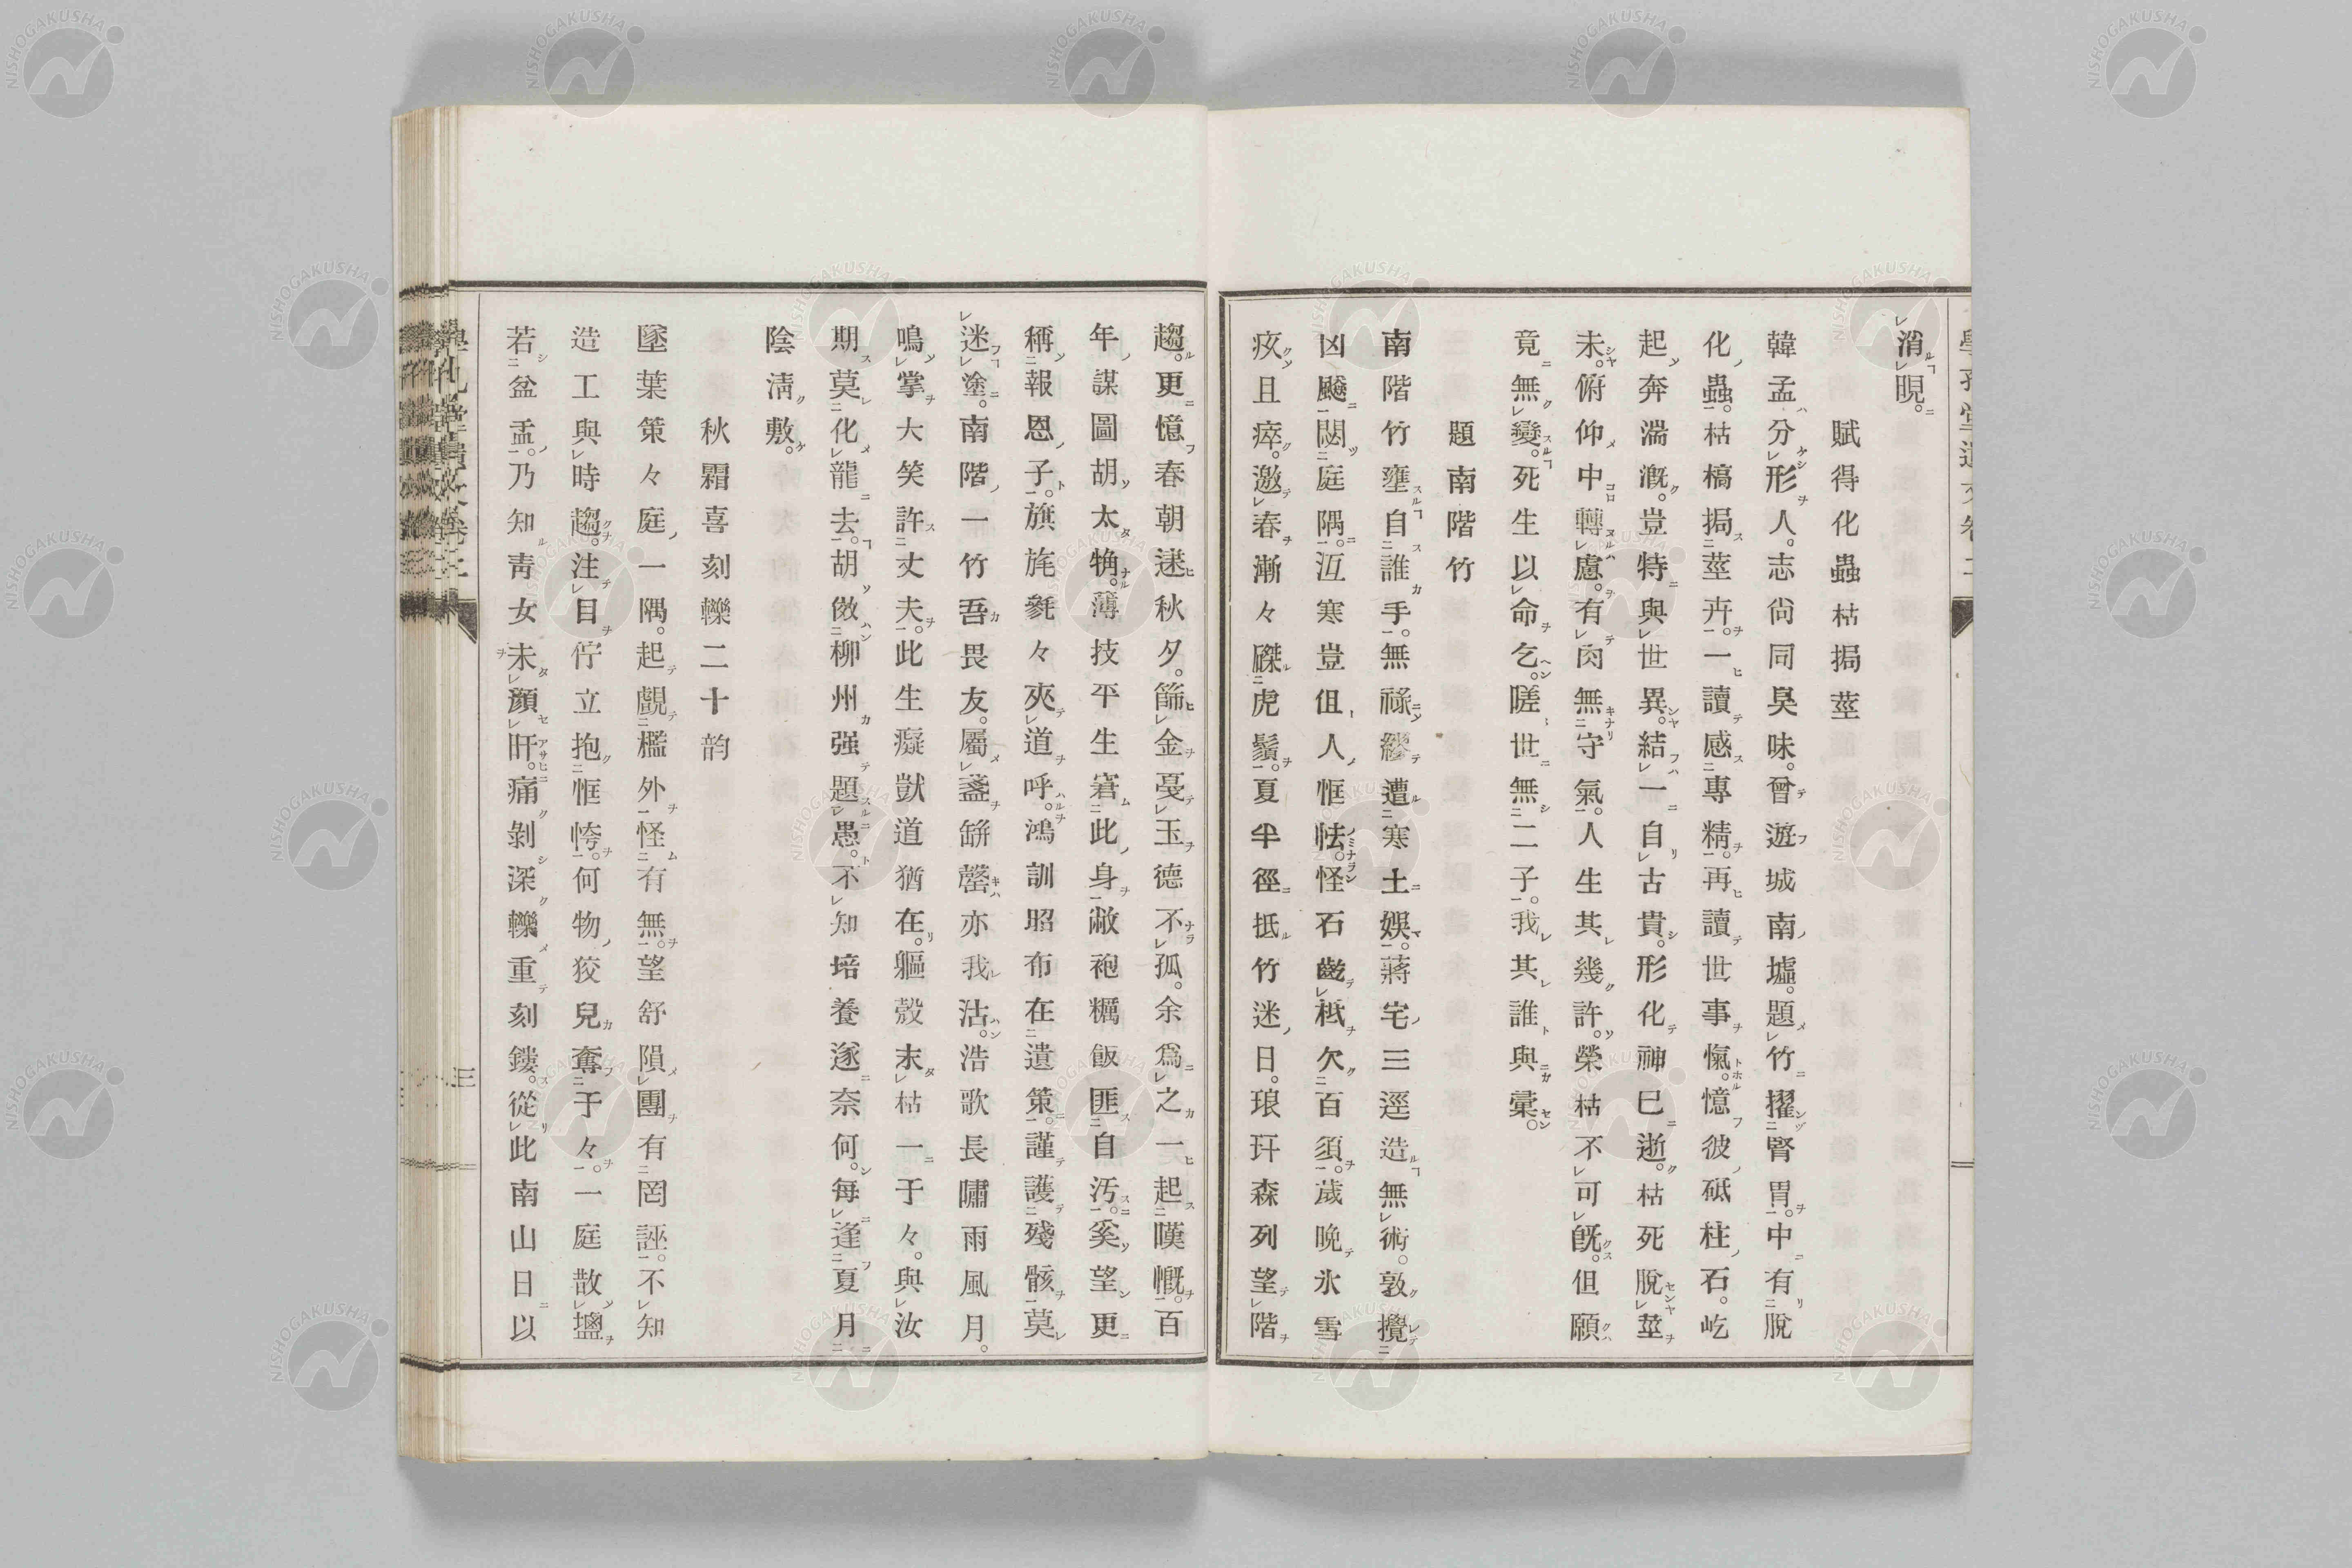 消晛。
賦得化蟲枯搨莖
韓孟分形人。志尙同臭味。曾遊城南墟。題竹擢腎胃。中有脫
化蟲。枯槁搨莖卉。一讀感專精。再讀世事愾。憶彼砥柱石。屹
起奔湍漑。豈特與世異。結一自古貴。形化神巳逝。枯死脫莖
未。俯仰中轉慮。有肉無守氣。人生其幾許。榮枯不可旣。但願
竟無變。死生以命乞。嗟世無二子。我其誰與彙。
題南階竹
南階竹壅自誰手。無祿繆遭寒土娛。蔣宅三逕造無術。敦攪
凶颷閟庭隅。沍寒豈伹人恇怯。怪石齒柢欠百須。歲晩氷雪
疚且瘁。邀春漸々磔虎鬚。夏半徑抵竹迷日。琅玕森列望階
趨。更憶春朝迷秋夕。篩金戞玉德不孤。余爲之一起嘆慨。百
年謀圖胡太觕。薄技平生窘此身。敝袍糲飯匪自汚。奚望更
稱報恩子。旗旄毿々夾道呼。鴻訓昭布在遺策。謹護殘骸莫
迷塗。南階一竹吾畏友。屬盞缾罄亦我沽。浩歌長嘯雨風月。
鳴掌大笑許丈夫。此生癡獃道猶在。軀殼末枯一于々。與汝
期莫化龍去。胡傚柳州强題愚。不知培養遂奈何。每逢夏月
陰淸敷。
秋霜喜刻轢二十韵
墜葉策々庭一隅。起覷檻外怪有無。望舒隕團有罔誣。不知
造工與時趨。注目佇立抱恇恗。何物狡兒奪于々。一庭散鹽
若盆盂。乃知靑女未顏旰。痛剝深轢重刻鏤。從此南山日以